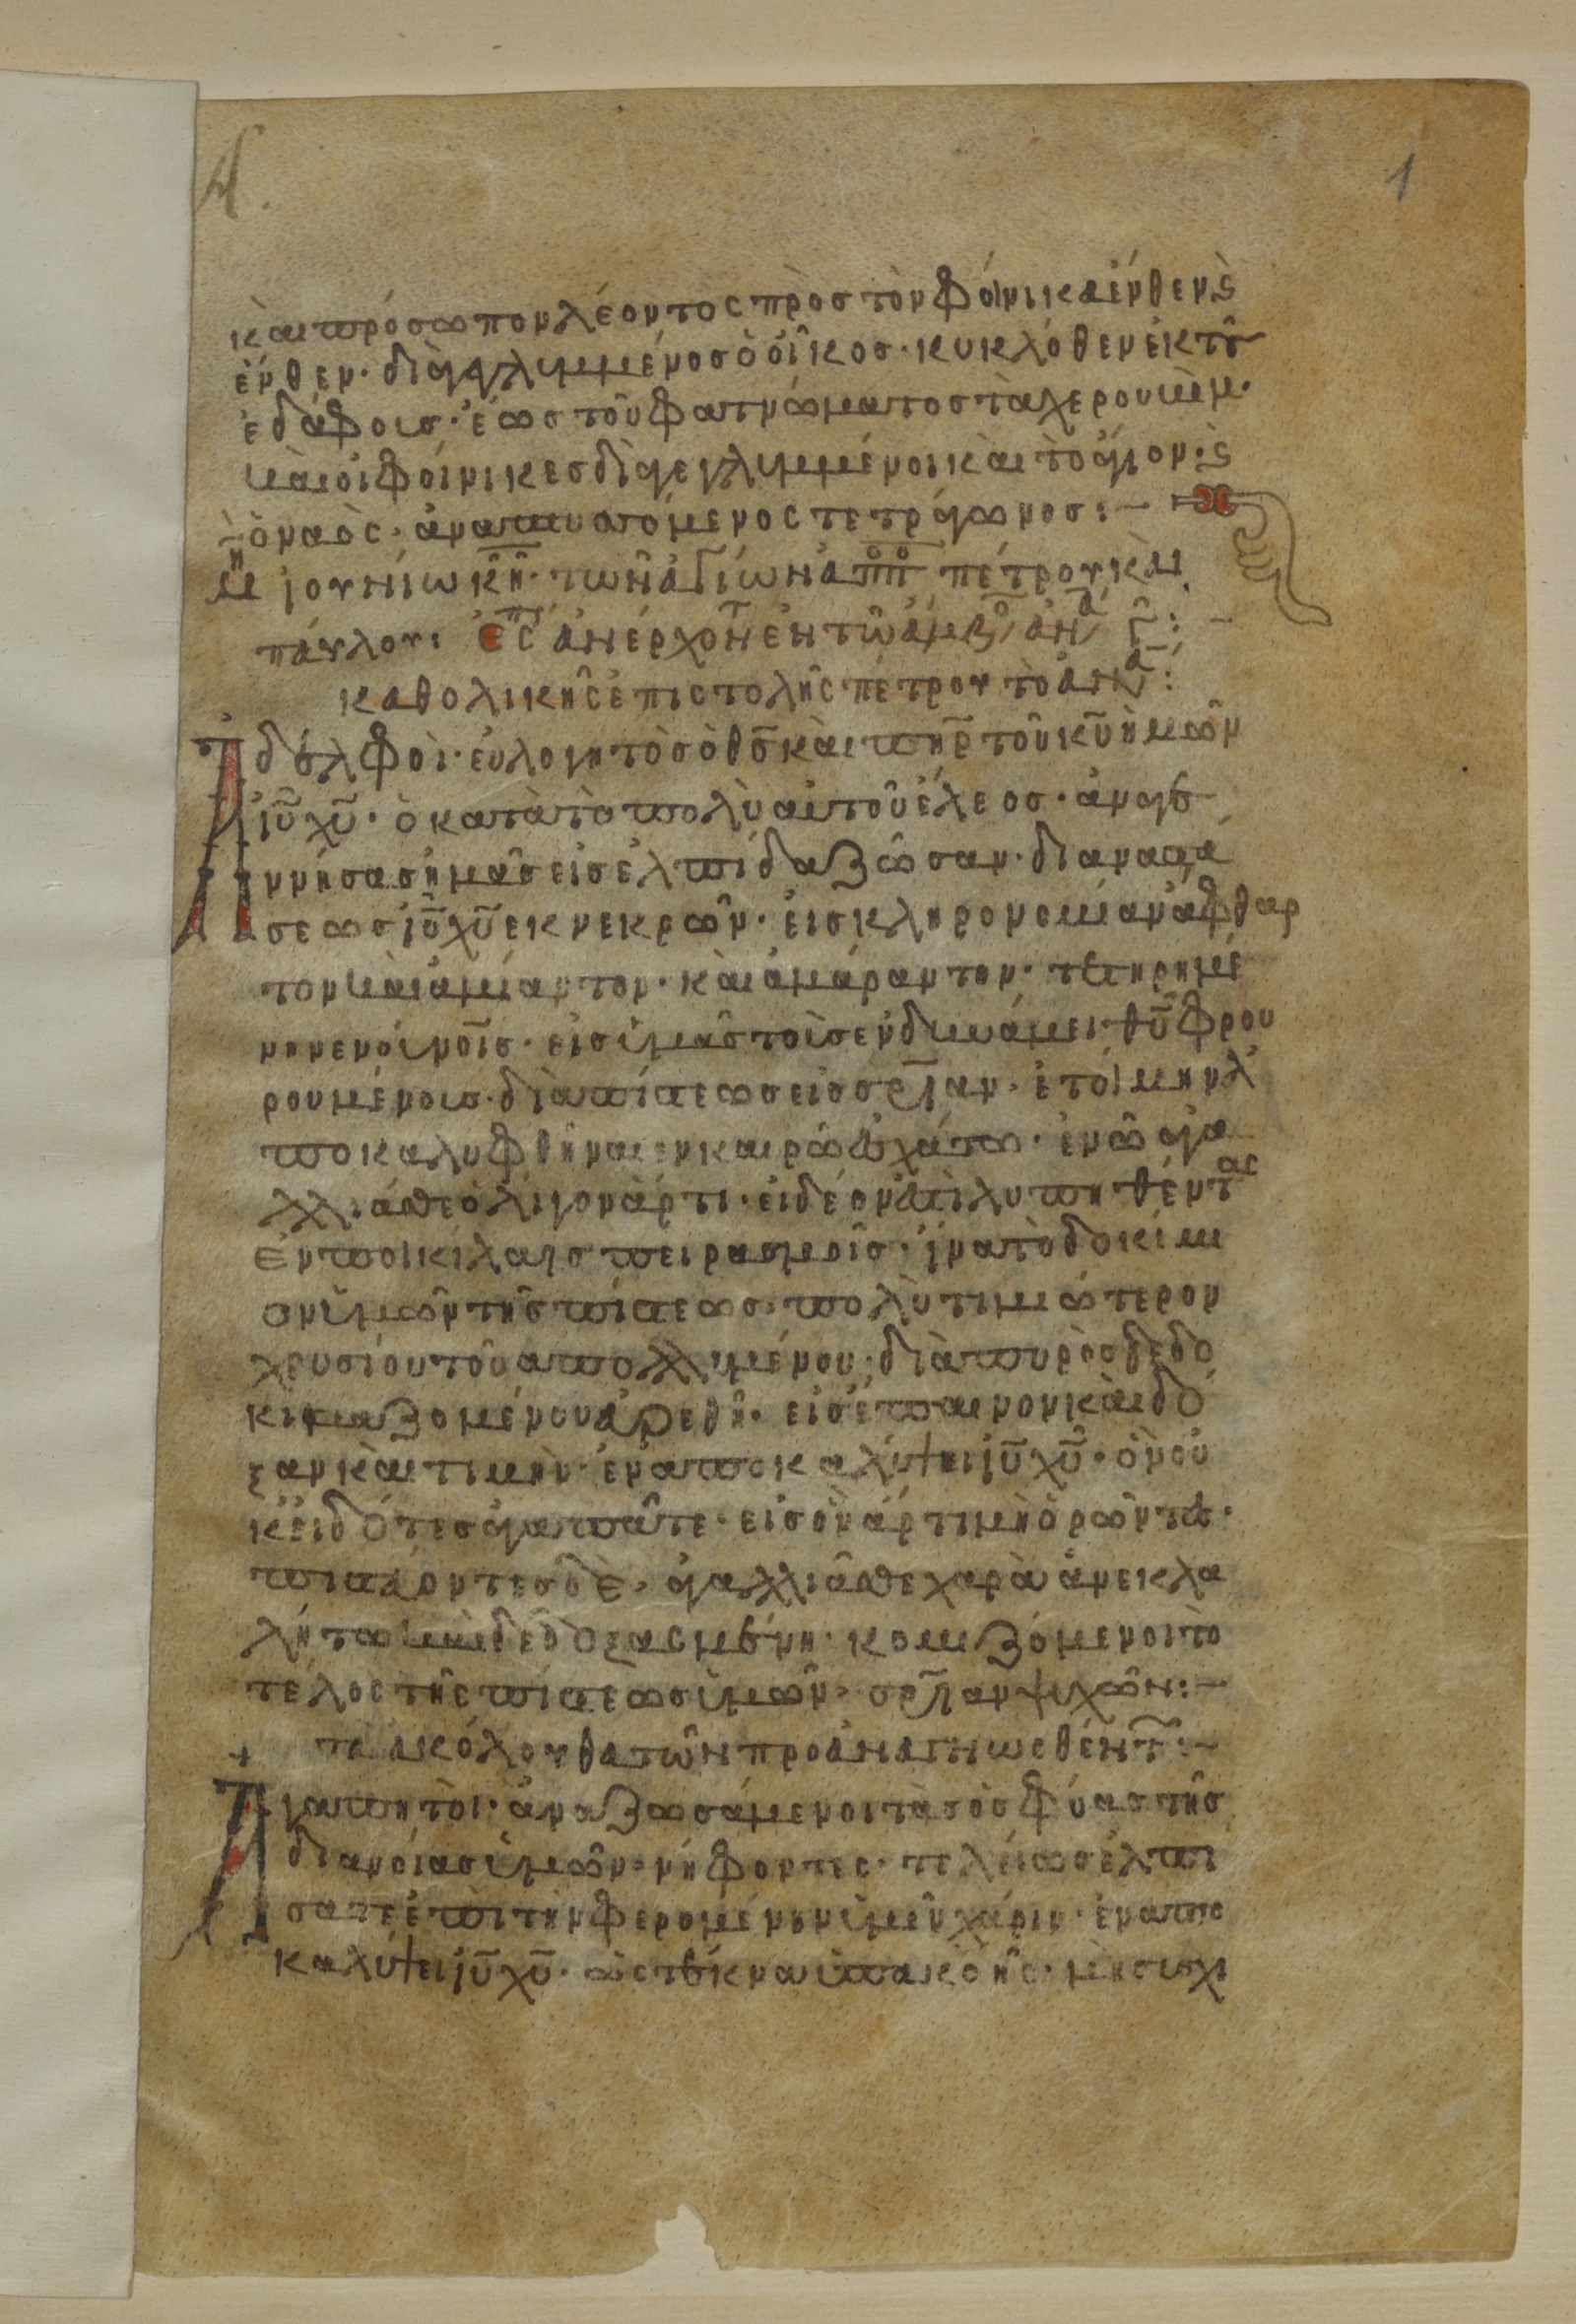 1
και πρόσωπον λέοντος πρὸς τὸν φοίνικα ἔνθεν ϛ
ἔνθεν· διαγεγλυμμένος ὁ οἶκος· κυκλόθεν ἐκ τοῦ
ἐδάφοις· ἕως τοῦ φατνώματος τὰ χερουβὶμ·
καὶ οἱ φοίνικες διαγεγλυμμένοι καὶ τὸ ἅγιον· ϛ
ὁ ναὸς· ἀναπτυσσόμενος τετράγωνος:–
μη ἰουνίω κ̅θ̅· τῶν ἁγίων ἀπ̅π̅ πέτρου καὶ
παύλου: ἑσπ ἀνερχον ἐν τῶ ἄμβο ἀνα γ:–
καθολικῆς ἐπιστολῆς πέτρου τὸ ἀνα:
Ἀδελφοὶ· εὐλογητὸς ὁ θ̅ς̅ καὶ π̅η̅ρ̅ τοῦ κ̅υ̅ ἡμῶν
ἰ̅υ̅ χ̅υ̅· ὁ κατὰ τὸ πολὺ αὐτοῦ ἔλεος· ἀναγε
ννήσας ἡμᾶς εἰς ἐλπίδα ζῶσαν· δι ἀναστά
σεως ἰ̅υ̅ χ̅υ̅ εκ νεκρῶν· εἰς κληρονομίαν ἄφθαρ
τον καὶ ἀμίαντον· καὶ ἀμάραντον· τετηρημέ
νην εν οὐνοῖς· εἰς ὑμᾶς τοὺς ἐν δυνάμει θ̅υ̅ φρου
ρουμένοις· διὰ πίστεως εἰς σ̅ρ̅ίαν· ἑτοίμην ἀ
ποκαλυφθῆναι εν καιρῶ ἐσχάτω· ἐν ῶ ἀγα
λλιάσθε ὀλίγον ἄρτι· εἰ δέον ἐστὶ λυπηθέντας
ἐν ποικίλαις πειρασμοῖς· ἵνα τὸ δοκίμι
ον ὑμῶν τῆς πίστεως· πολὺ τιμιώτερον
χρυσίου τοῦ απολλυμένου· διὰ πυρὸς δεδο
κιμαζομένου εὑρεθῆ· εἰς ἔπαινον καὶ δό
ξαν καὶ τιμὴν· ἐν αποκαλύψει ἰ̅υ̅ χ̅υ̅· ὃν οὐ
κ εἰδότες ἀγαπᾶτε· εἰς ὃν ἄρτι μὴ ὁρῶντες·
πιστεύοντες δὲ· ἀγαλλιᾶσθε χαρὰ ἀνεκλα
λήτω καὶ δεδοξασμένη· κομιζόμενοι τὸ
τέλος τῆς πίστεως ὑμῶν· σ̅ρ̅ίαν ψυχῶν:–
+ τὰ ἀκόλουθα τῶν προαναγνωσθέντ:–
Ἀγαπητοὶ· ἀναζωσάμενοι τὰς ὀσφύας τῆς
διανοίας ὑμῶν· νήφοντες· τελείως ἐλπί
σατε ἐπὶ τὴν φερομένην ὑμῖν χάριν· ἐν απο
καλύψει ἰ̅υ̅ χ̅υ̅· ὡς τέκνα ὑπακοῆς· μὴ συσχι